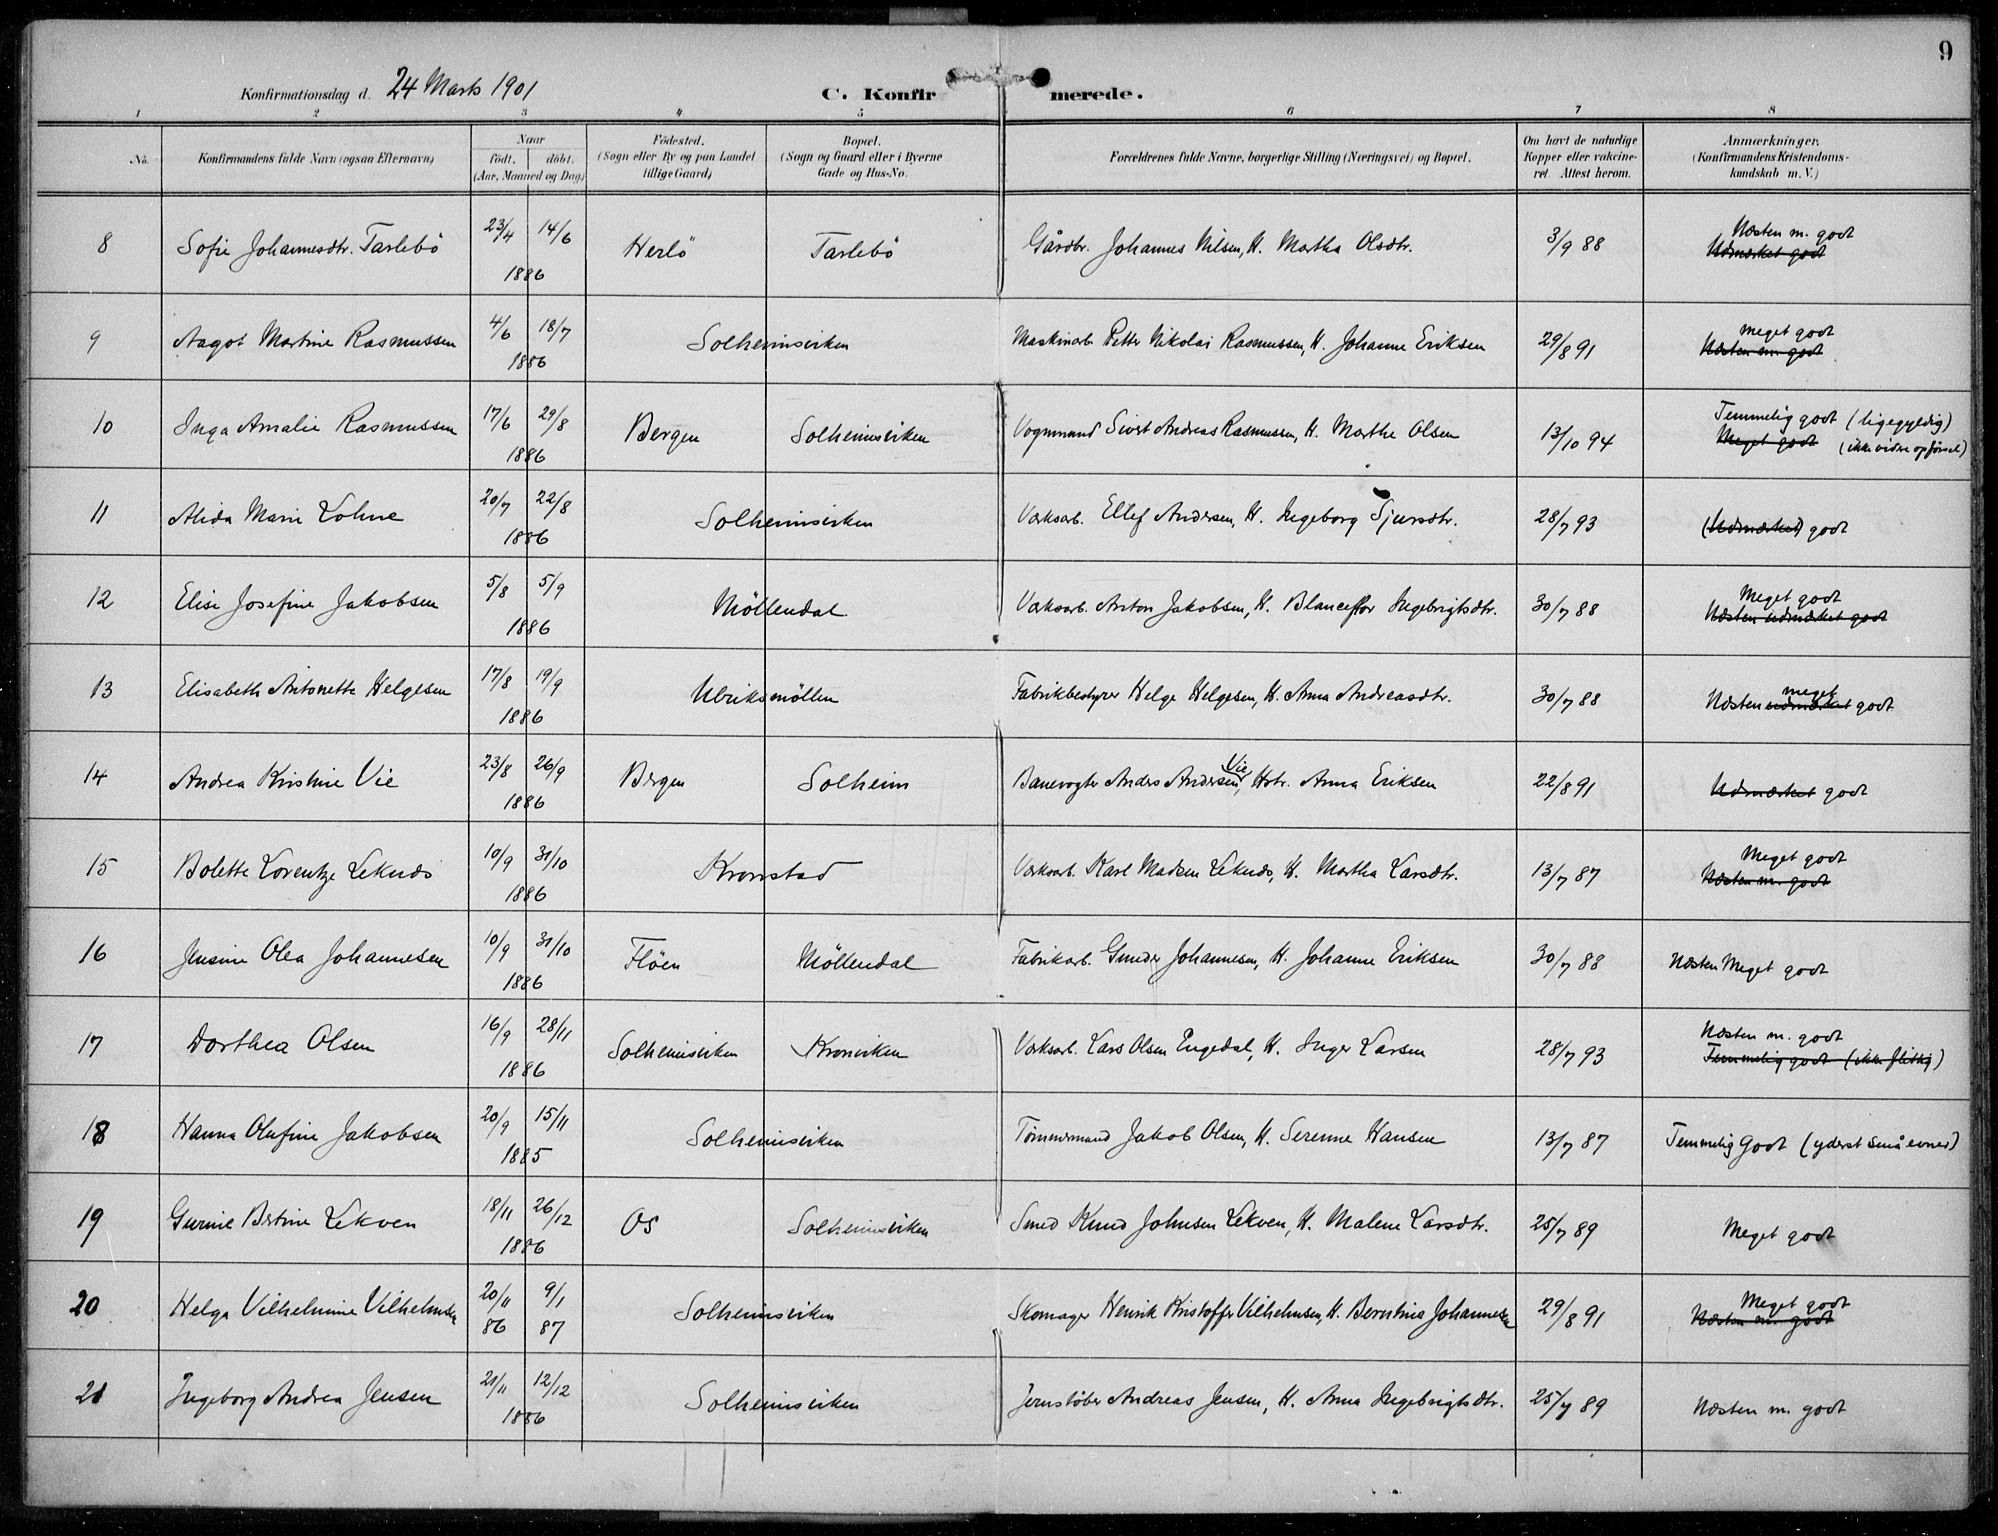 9
Konfirmationsdag d. 24 Marts 1901
C. Konfirmerede.
1 2 3 4 5 6 7 8
No. Konfirmandens fulde Navn (ogsaa Efternavn) Naar födt. döbt. (Aar, Maaned og Dag) Födested. (Sogn eller By og paa Landet tillige Gaard) Bopæl. (Sogn og Gaard eller i Byerne Gade og Hus-No. Forældrenes fulde Navne, borgerlige Stilling (Næringsvei) og Bopæl. Om havt de naturlige Kopper eller vakcineret. Attest herom. Anmærkninger. (Konfirmandens Kristendomskundskab m. V.)
8 Sofie Johannesdtr. Tarlebö 23/4 14/6 1886 Herlö Tarlebö Gårdbr. Johannes Nilsen, H. Martha Olsdtr. 3/9 88 Næsten m. godt
Udmærket godt
9 Aagot Martine Rasmussen 4/6 18/7 1886 Solheimsviken Maskinarb. Petter Nikolai Rasmussen, H. Johanne Eriksen 29/8 91 Meget godt
Næsten m. godt
10 Inga Amalie Rasmussen 17/6 29/8 1886 Bergen Solheimsviken Vognmand Sivert Andreas Rasmussen, H. Marthe Olsen 13/10 94 Temmelig godt (ligegyldig)
Meget godt (ikke videre opførsel)
11 Alida Marie Lohne 20/7 22/8 1886 Solheimsviken Værksarb. Ellef Andersen, H. Ingeborg Sjursdtr. 28/7 93 (Udmærket) godt
12 Elise Josefine Jakobsen 5/8 5/9 1886 Möllendal Værksarb. Anton Jakobsen, H. Blanceflor Ingebrigtsdtr. 30/7 88 Meget godt
Næsten udmærket godt
13 Elisabeth Antonette Helgesen 17/8 19/9 1886 Ulriksmöllen Fabrikbestyrer Helge Helgesen, H. Anna Andreasdtr. 30/7 88 Næsten udmærket meget godt
14 Andrea Kristine Vie 23/8 26/9 1886 Bergen Solheim Banevogter Anders Andersen Vie, Hstr. Anna Eriksen 22/8 91 Udmærket godt
15 Bolette Lorentze Leknes 10/9 31/10 1886 Kronstad Værksarb. Karl Madsen Leknes, H. Martha Larsdtr. 13/7 87 Meget godt
Næsten m. godt
16 Jensine Olea Johannesen 10/9 31/10 1886 Flöen Möllendal Fabrikarb. Johannesen, H. Johanne Eriksen 30/7 88 Næsten Meget godt
17 Dorthea Olsen 16/9 28/11 1886 Solheimsviken Kronviken Værksarb. Lars Olsen Engedal, H. Inger Larsen 28/7 93 Næsten m. godt
Temmelig godt (ikke flittig)
18 Hanna Olufine Jakobsen 20/9 15/11 1885 Solheimsviken Tömmermand Jakob Olsen, H. Serenne Hansen 13/7 87 Temmelig Godt (yderst små evner)
19 Gurine Bertine Lekven 18/11 26/12 1886 Os Solheimsviken Smed Knud Johnsen Lekven, H. Malene Larsdtr. 25/7 89 Meget godt
20 Helga Vilhelmine Vilhelmsen 20/11 86 9/1 87 Solheimsviken Skomager Henrik Kristoffer Vilhelmsen, H. Berntine Johannesen 29/8 91 Meget godt
Næsten m. godt
21 Ingeborg Andrea Jensen 21/11 12/12 1886 Solheimsviken Jernstöber Andreas Jensen, H. Anna Ingebrigtsdtr. 25/7 89 Næsten m. godt